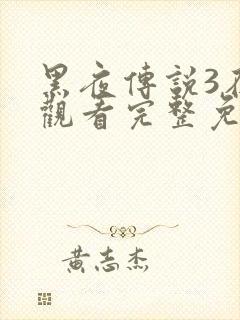 黑夜傳説3
觀看完整免
黃志杰